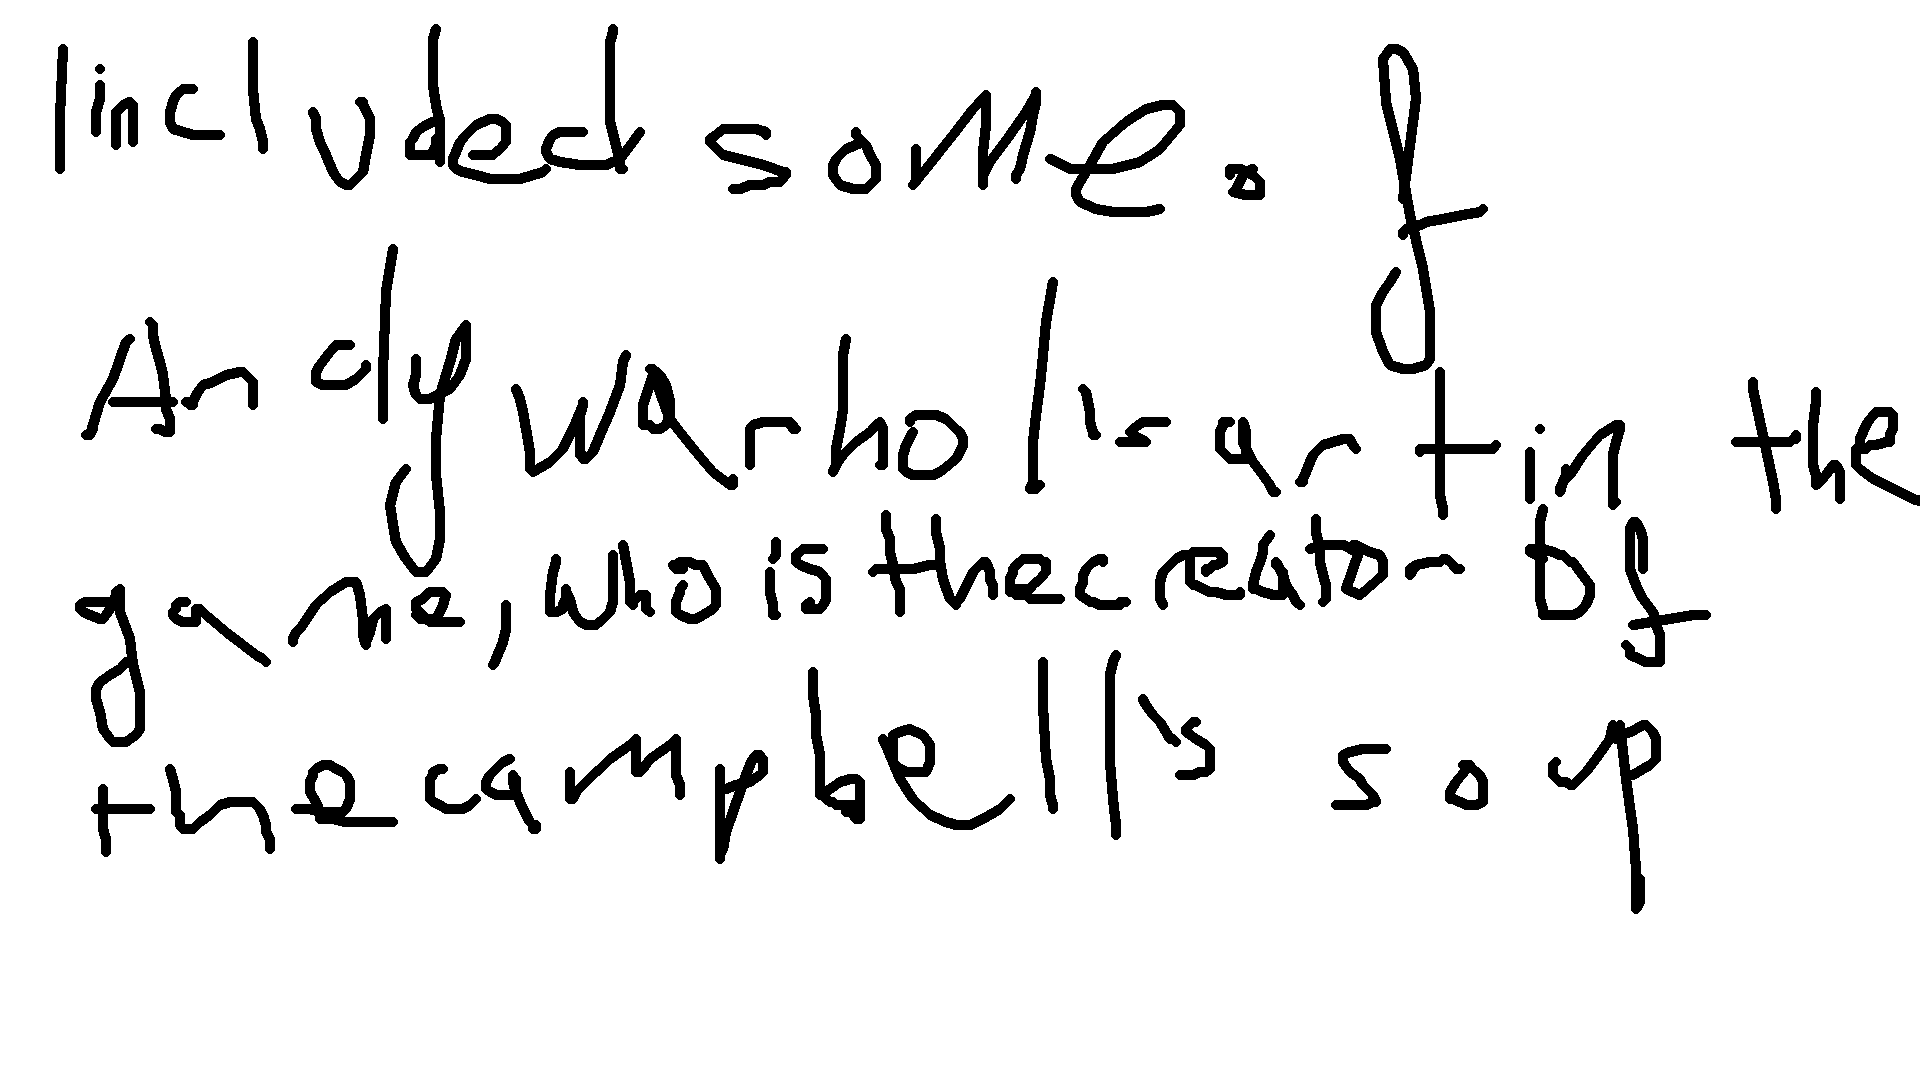 I included some of
Andy warhol's art in the
game, who is the creator of
the campbell's soup